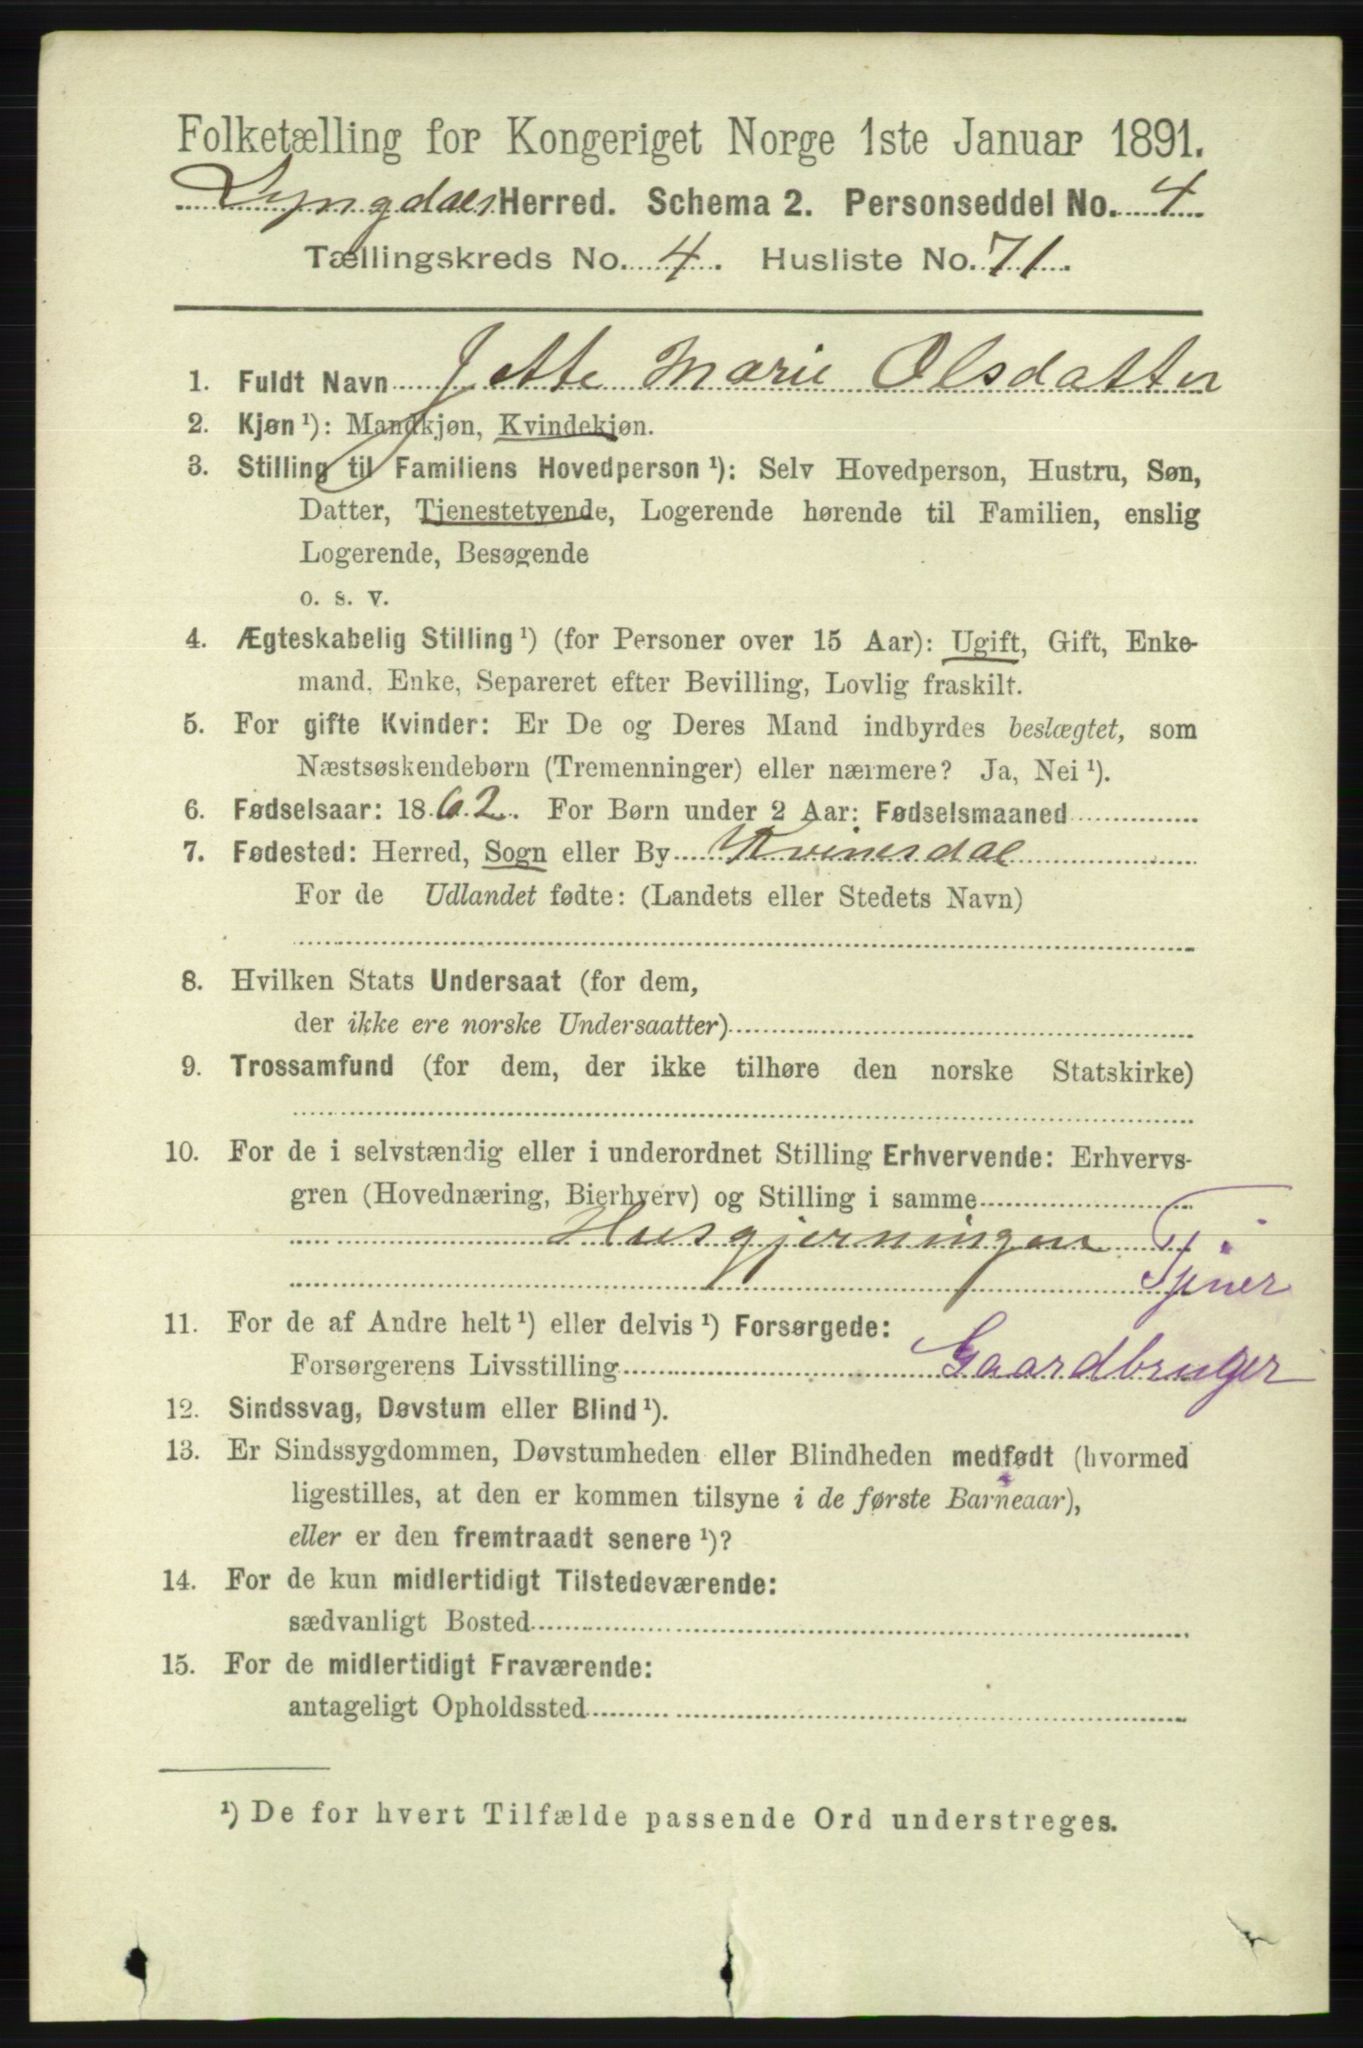 Folketælling for Kongeriget Norge 1ste Januar 1891.
Lyngdals Herred. Schema 2. Personseddel No. 4
Tællingskreds No. 4. Husliste No. 71.
1. Fuldt Navn Jette Marie Olsdatter
2. Kjøn ¹): Mandkjøn, Kvindekjøn.
3. Stilling til Familiens Hovedperson ¹): Selv Hovedperson, Hustru, Søn,
Datter, Tjenestetyende, Logerende hørende til Familien, enslig
Logerende, Besøgende
o. s. v.
4. Ægteskabelig Stilling ¹) (for Personer over 15 Aar): Ugift, Gift, Enke-
mand, Enke, Separeret efter Bevilling, Lovlig fraskilt.
5. For gifte Kvinder: Er De og Deres Mand indbyrdes beslægtet, som
Næstsøskendebørn (Tremenninger) eller nærmere? Ja, Nei ¹).
6. Fødselsaar: 1862. For Børn under 2 Aar: Fødselsmaaned
7. Fødested: Herred, Sogn eller By Kvinesdal
For de Udlandet fødte: (Landets eller Stedets Navn)
8. Hvilken Stats Undersaat (for dem,
der ikke ere norske Undersaatter)
9. Trossamfund (for dem, der ikke tilhøre den norske Statskirke)
10. For de i selvstændig eller i underordnet Stilling Erhvervende: Erhvervs-
gren (Hovednæring, Bierhverv) og Stilling i samme
Husgjerningen Tjener
11. For de af Andre helt ¹) eller delvis ¹) Forsørgede:
Forsørgerens Livsstilling Gaardbruger
12. Sindssvag, Døvstum eller Blind ¹).
13. Er Sindssygdommen, Døvstumheden eller Blindheden medfødt (hvormed
ligestilles, at den er kommen tilsyne i de første Barneaar),
eller er den fremtraadt senere ¹)?
14. For de kun midlertidigt Tilstedeværende:
sædvanligt Bosted
15. For de midlertidigt Fraværende:
antageligt Opholdssted
¹) De for hvert Tilfælde passende Ord understreges.